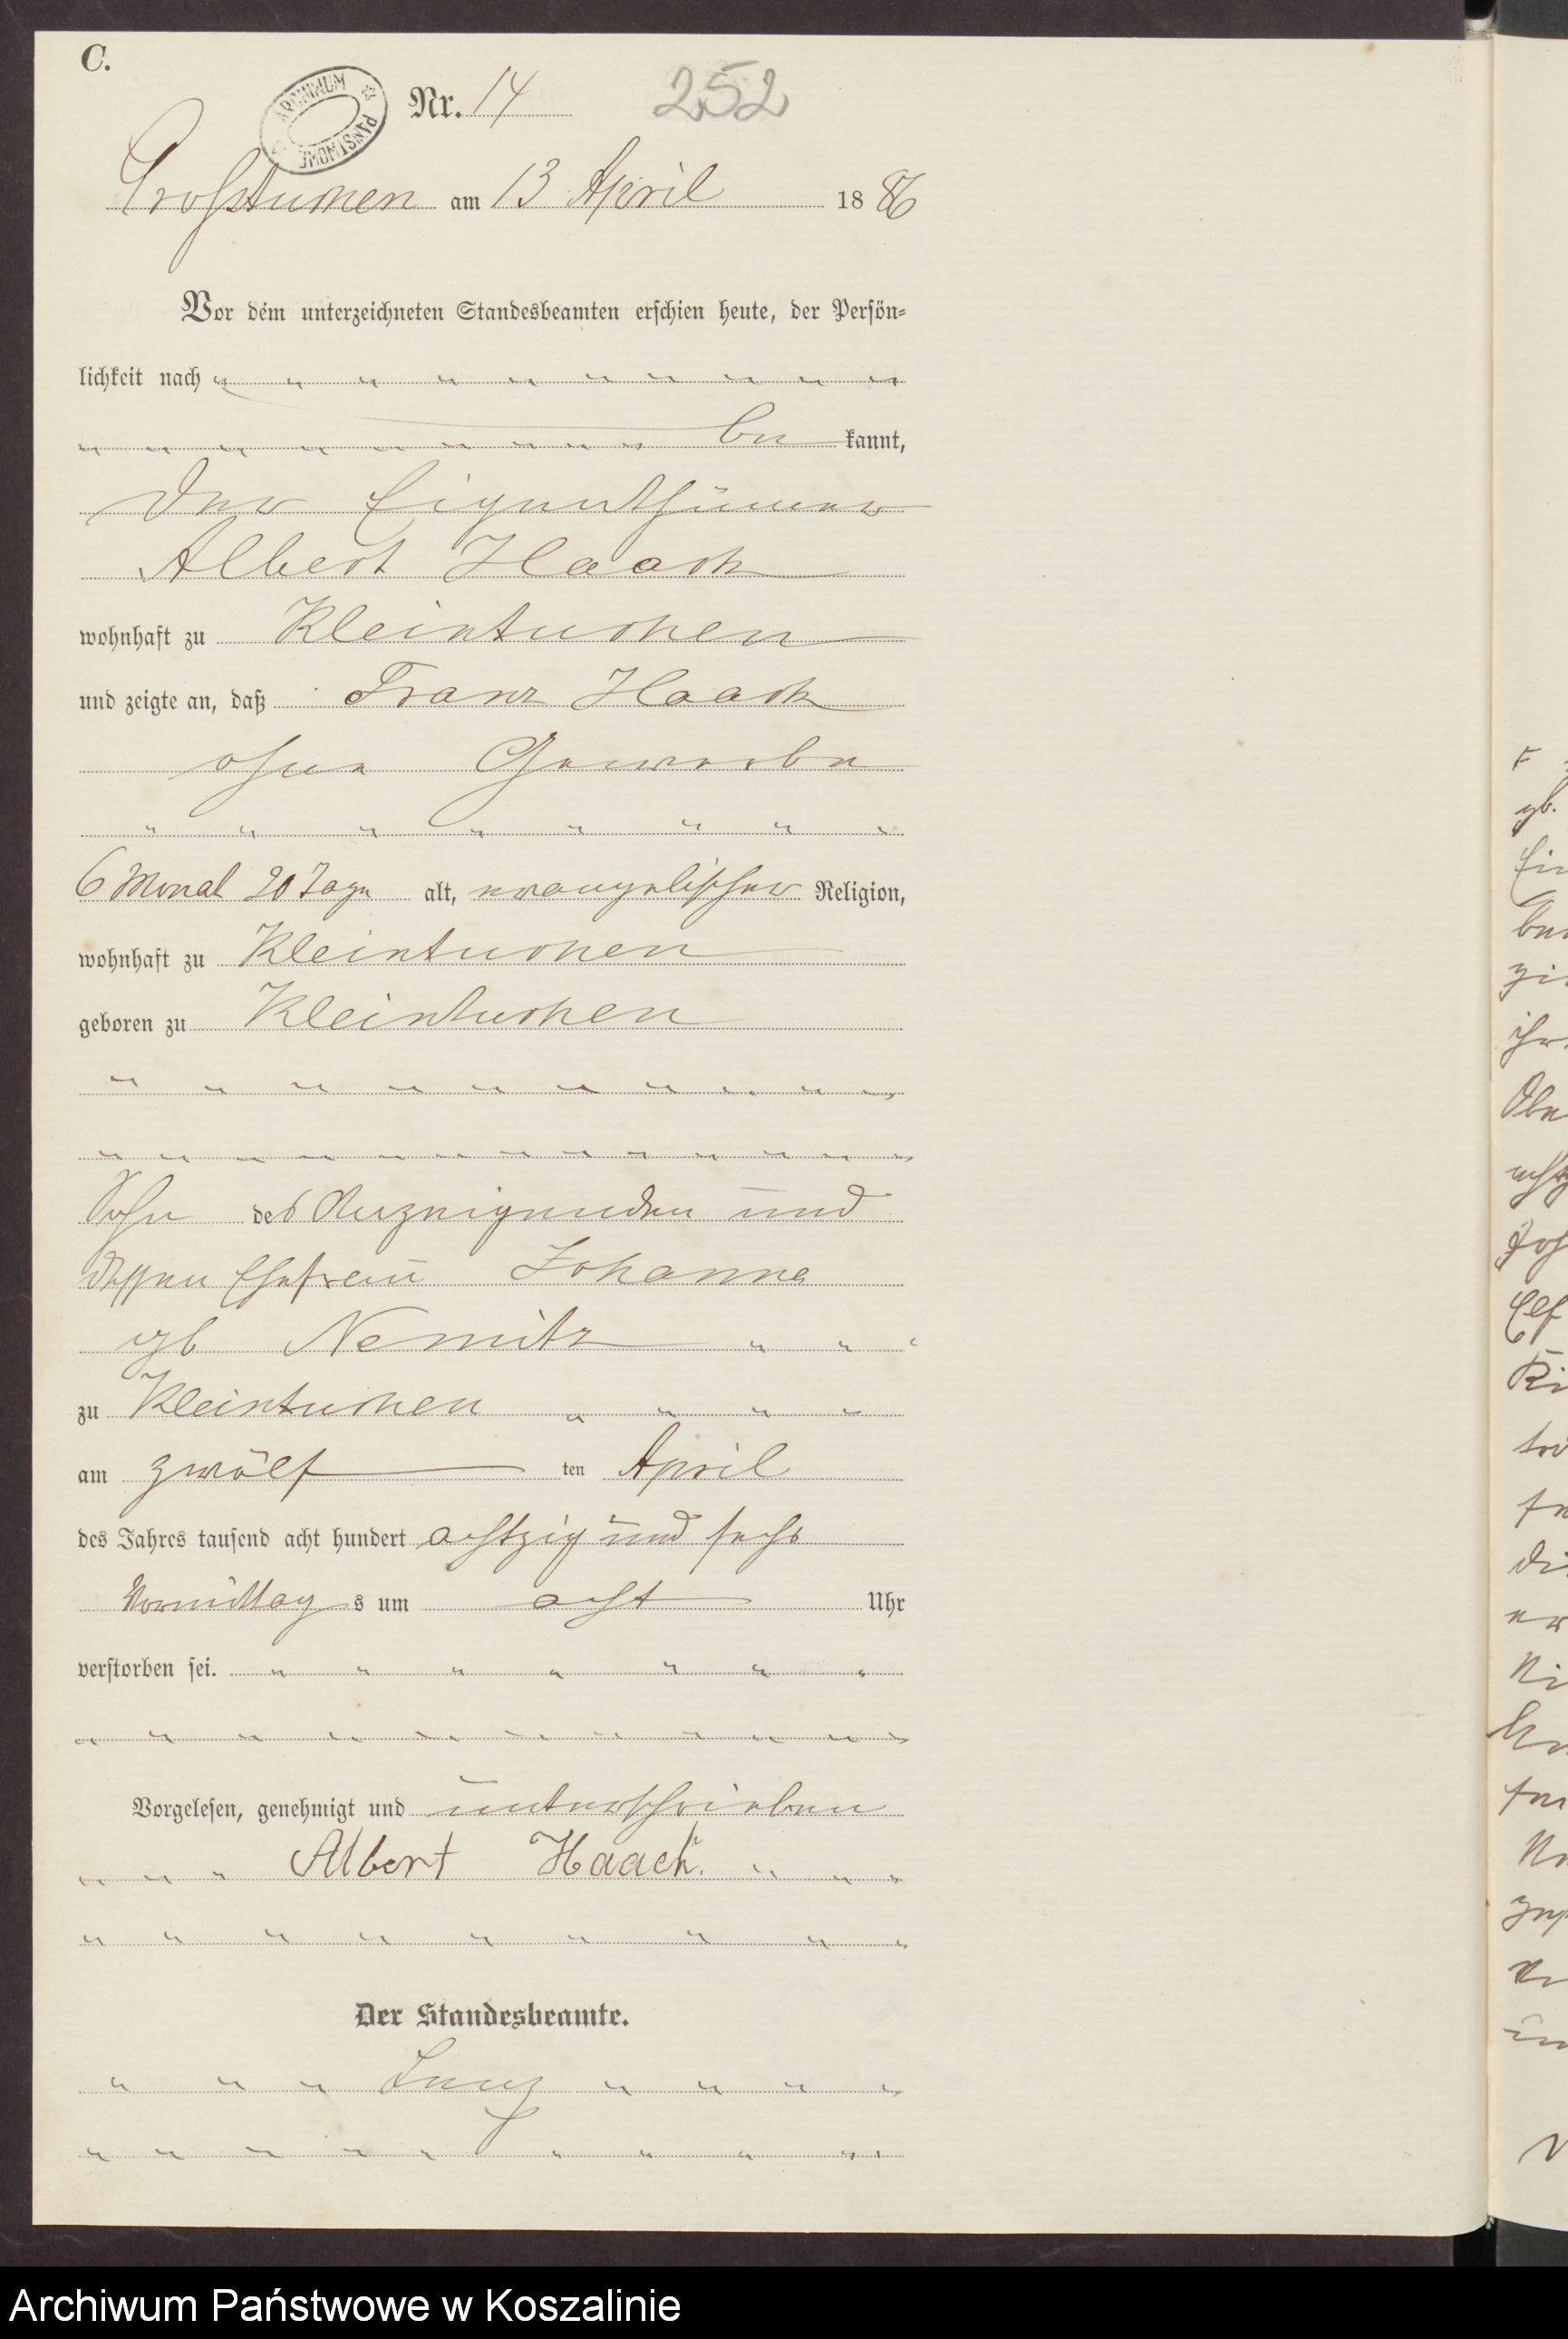 C.
ARCHIWUM PAŃSTWOWE
Nr. 14 252
Großtuchen am 13 April 1886
Vor dem unterzeichneten Standesbeamten erschien heute, der Persön-
lichkeit nach
be kannt,
der Eigenthümer
Albert Haack
wohnhaft zu Kleintuchen
und zeigte an, daß Franz Haack
ohne Gewerbe
6 Monat 20 Tage alt, evangelischer Religion,
wohnhaft zu Kleintuchen
geboren zu Kleintuchen
Sohn des Anzeigenden und
dessen Ehefrau Johanna
geb Nemitz
zu Kleintuchen
am zwölf ten April
des Jahres tausend acht hundert achtzig und sechs
Vormittag s um acht Uhr
verstorben sei.
Vorgelesen, genehmigt und unterschrieben
Albert Haack.
Der Standesbeamte.
Archiwum Państwowe w Koszalinie